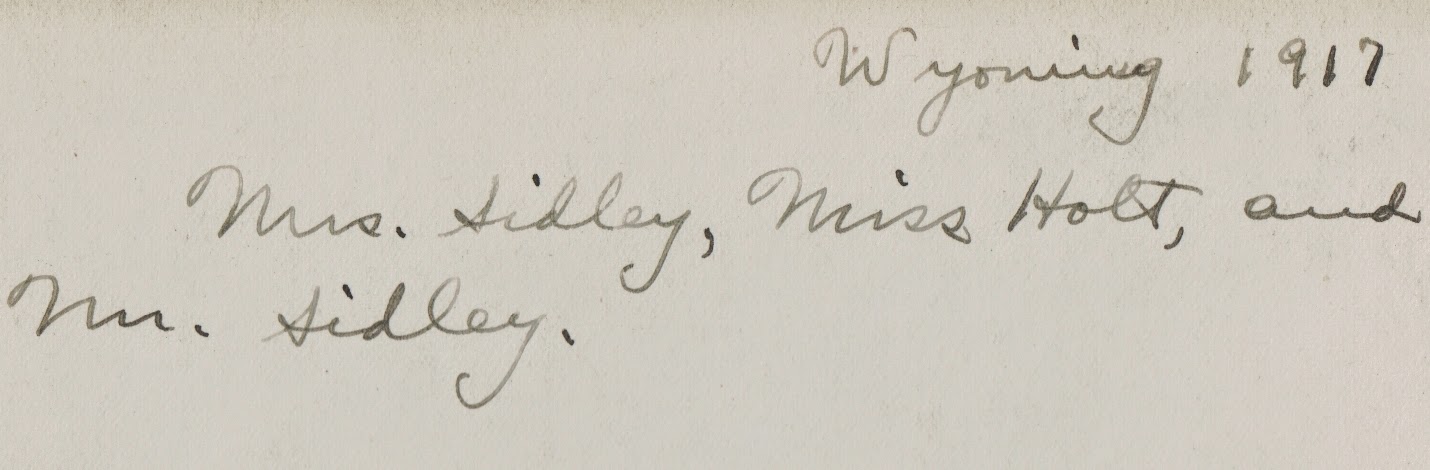 Wyoming 1917
Mrs. Sidley, Miss Holt, and
Mr. Sidley.